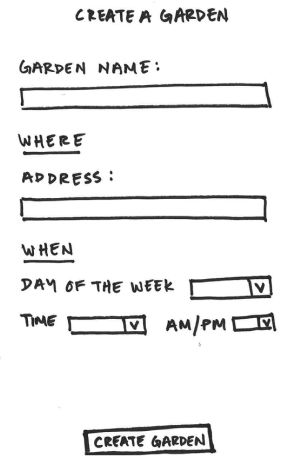 CREATE A GARDEN
GARDEN NAME:
WHERE
ADDRESS:
WHEN
DAY OF THE WEEK
TIME AM/PM
CREATE GARDEN